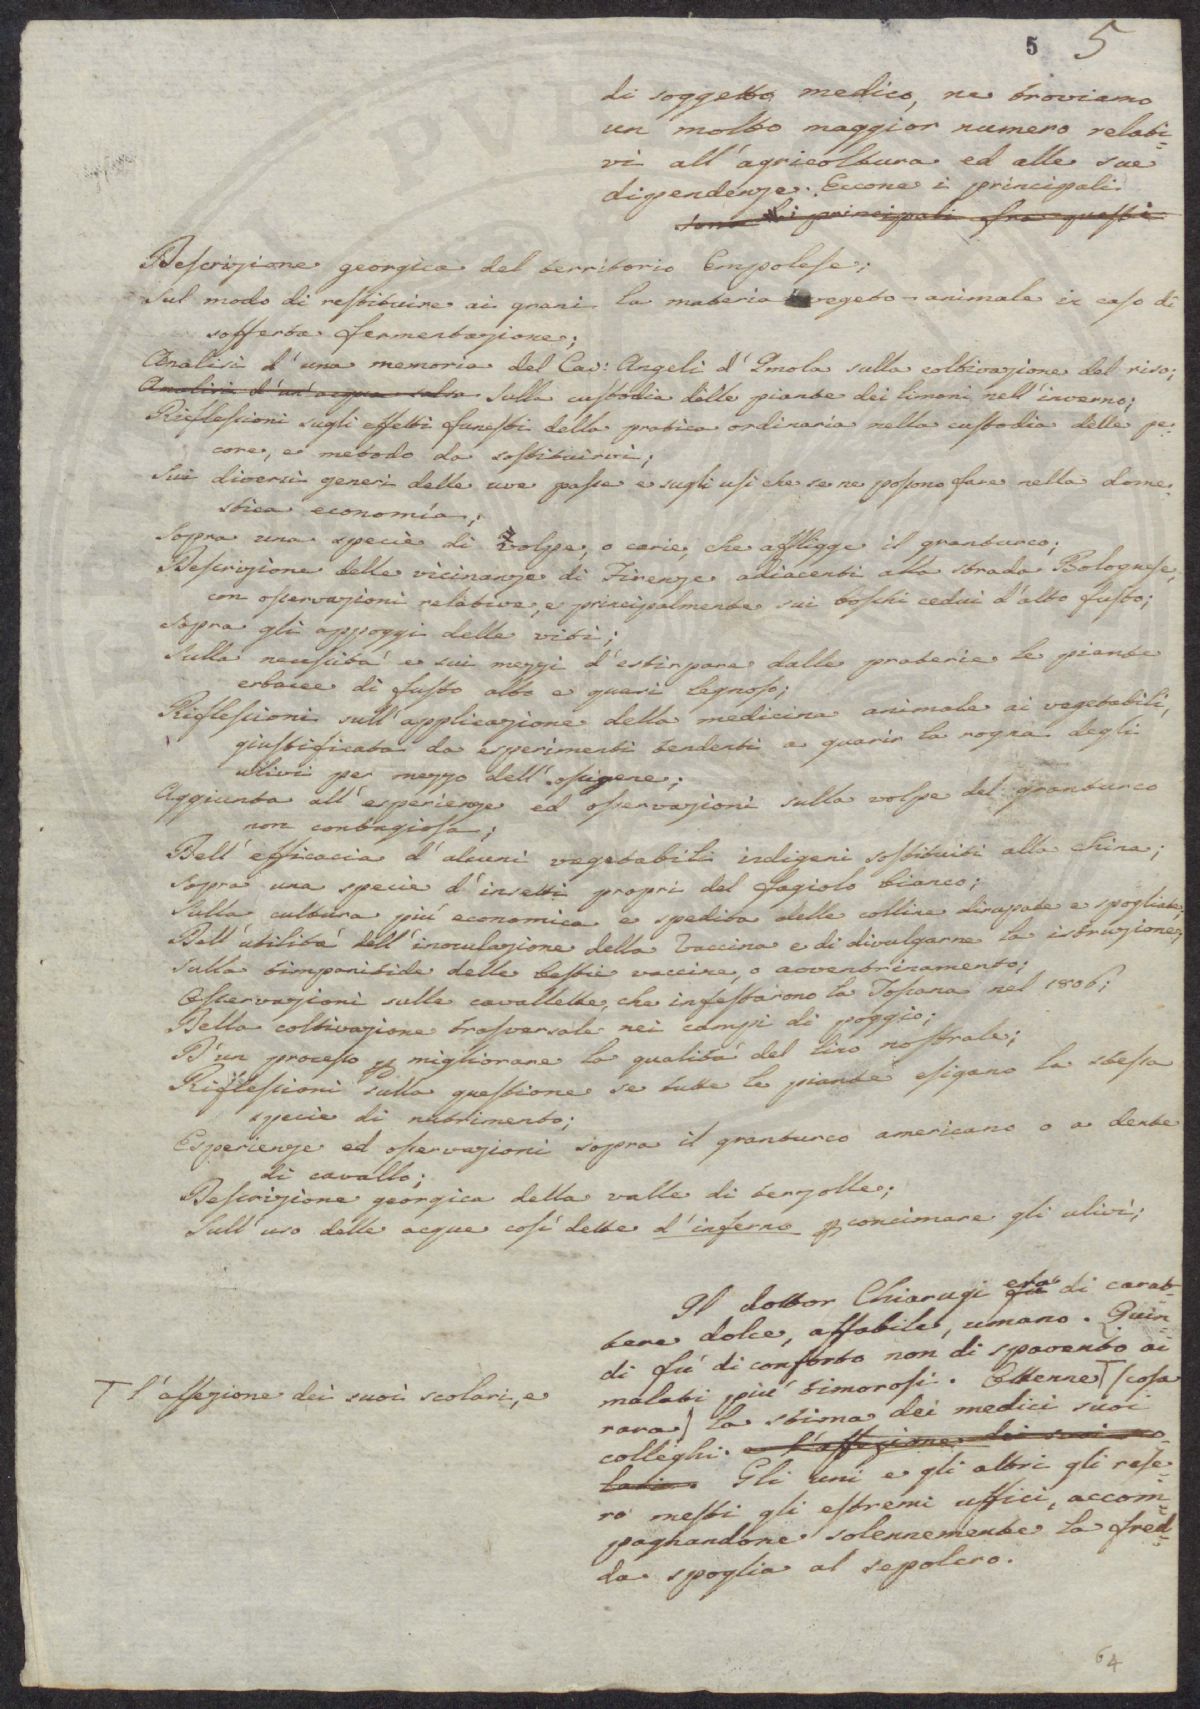 5 5
di soggetto medico, ne troviamo
un molto maggior numero relati=
vi all'agricoltura ed alle sue
dipendenze. Eccone i principali.
sono li principali fra questi
Descrizione georgica del territorio Empolese;
Sul modo di restituire ai grani la materia vegeto-animale in caso di
sofferta fermentazione;
Analisi d'una memoria del Cav: Angeli d'Imola sulla coltivazione del riso;
Analisi d'un'acqua salsa Sulla custodia delle piante dei limoni nell'inverno;
Riflessioni sugli effetti funesti della pratica ordinaria nella custodia delle pe=
core, e metodo da sostituirvi;
Sui diversi generi delle uve passe e sugli usi che se ne possono fare nella dome=
stica economia;
Sopra una specie di volpe, o carie che affligge il granturco;
Descrizione delle vicinanze di Firenze adiacenti alla strada Bolognese,
con osservazioni relative, e principalmente sui boschi cedui d'alto fusto;
Sopra gli appoggi delle viti;
Sulla necessità e sui mezzi d'estirpare dalle praterie le piante
erbacee di fusto alto e quasi legnoso;
Riflessioni sull'applicazione della medicina animale ai vegetabili,
giustificata da esperimenti tendenti a guarir la rogna degli
ulivi per mezzo dell'ossigene;
Aggiunta all'esperienze ed osservazioni sulla volpe del granturco
non contagiosa;
Dell'efficacia d'alcuni vegetabili indigeni sostituiti alla china;
Sopra una specie d'insetti propri del fagiolo bianco;
Sulla cultura più economica e spedita delle colline dirupate e spogliate;
Dell'utilità dell'inoculazione della Vaccina e di divulgarne la istruzione;
Sulla timpanitide delle bestie vaccine, o avventrinamento;
Osservazioni sulle cavallette, che infestarono la Toscana nel 1806;
Della coltivazione trasversale nei campi di poggio;
D'un processo p migliorare la qualità del lino nostrale;
Riflessioni sulla questione se tutte le piante esigano la stessa
specie di nutrimento;
Esperienze ed osservazioni sopra il granturco americano o a dente
di cavallo;
Descrizione georgica della valle di terzolle;
Sull'uso delle acque così dette d'inferno p concimare gli ulivi;
Il dottor Chiarugi fu era di carat=
tere dolce, affabile, umano. Quin=
di fù di conforto non di spavento ai
malati più timorosi. Ottenne T (cosa
rara) la stima dei medici suoi
colleghi. e l'affezione dei suoi sco=
lari. Gli uni e gli altri gli rese=
ro mesti gli estremi uffici, accom=
pagnandone solennemente la fred=
da spoglia al sepolcro.
T l'affezione dei suoi scolari, e
64